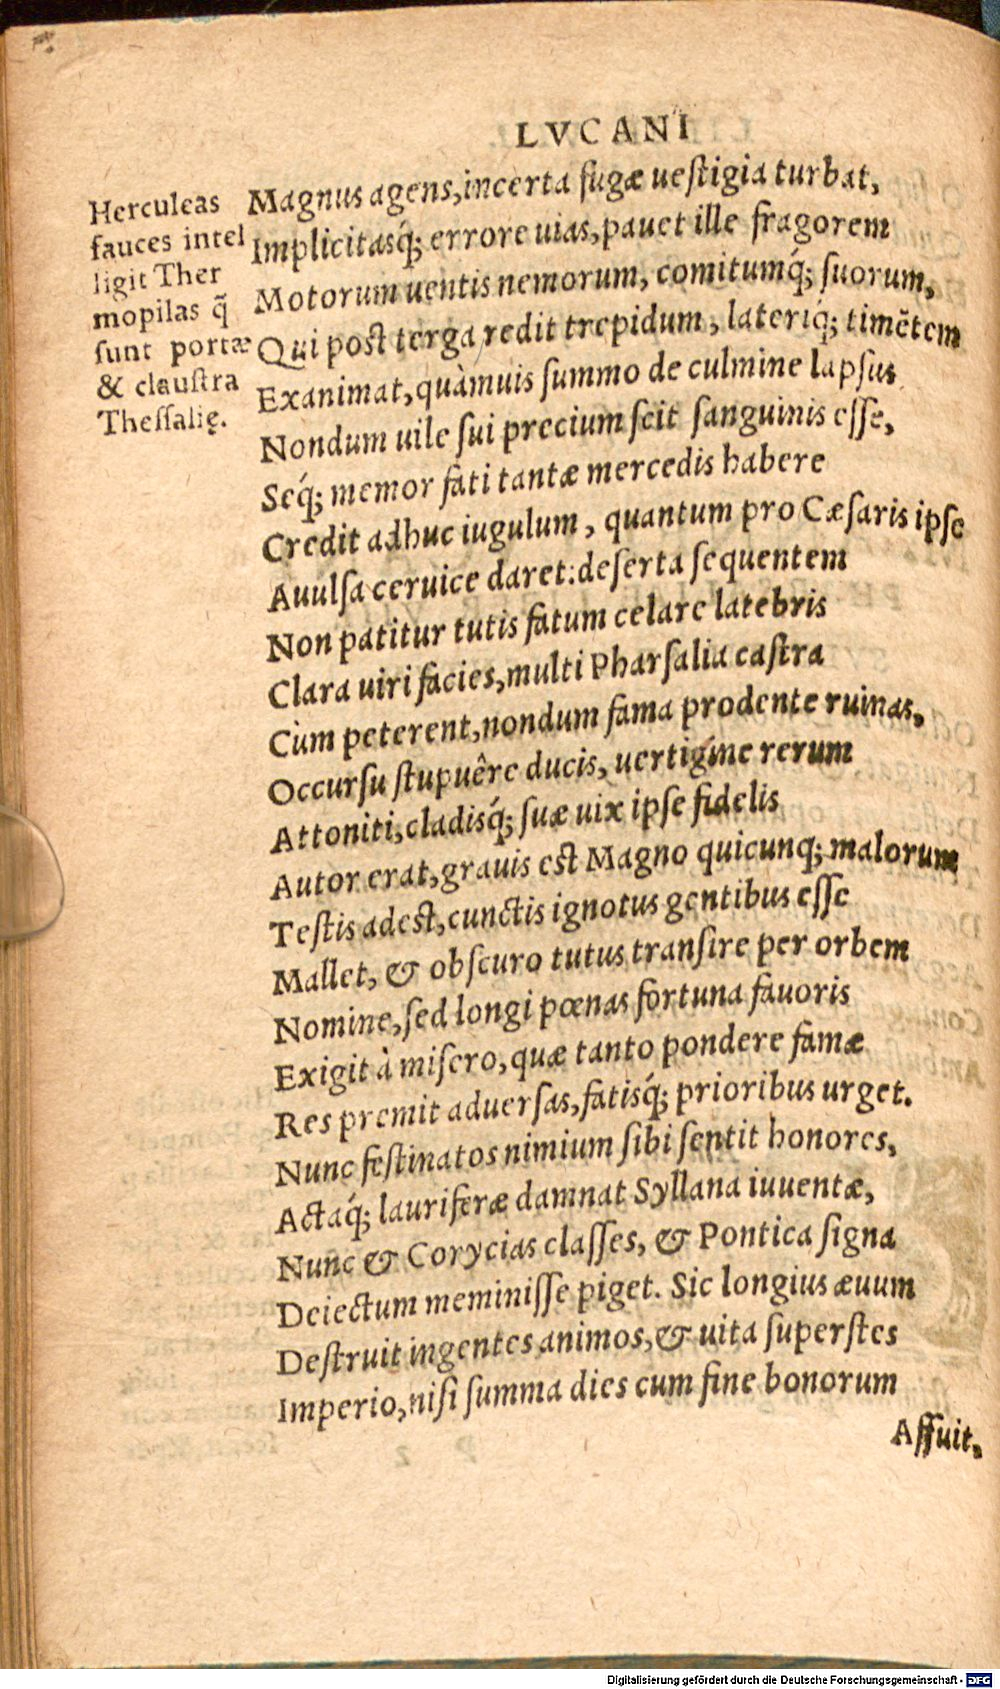 LVCANI
Herculeas
fauces intel
ligit Ther
mopilas q̃
sunt portæ
& claustra
Thessalię.
Magnus agens, incerta fugæ uestigia turbat,
Implicitasq́; errore uias, pauet ille fragorem
Motorum uentis nemorum, comitumq́; suorum,
Qui post terga redit trepidum, lateriq́; timẽtem
Exanimat, quàmuis summo de culmine lapsus
Nondum uile sui precium scit sanguinis esse,
Seq́; memor fati tantæ mercedis habere
Credit adhuc iugulum, quantum pro Cæsaris ipse
Auulsa ceruice daret: deserta sequentem
Non patitur tutis fatum celare latebris
Clara uiri facies, multi Pharsalia castra
Cùm peterent, nondum fama prodente ruinas,
Occursu stupuêre ducis, uertigine rerum
Attoniti, cladisq́; suæ uix ipse fidelis
Autor erat, grauis est Magno quicunq; malorum
Testis adest, cunctis ignotus gentibus esse
Mallet, & obscuro tutus transire per orbem
Nomine, sed longi pœnas fortuna fauoris
Exigit à misero, quæ tanto pondere famæ
Res premit aduersas, fatisq́; prioribus urget.
Nunc festinatos nimium sibi sentit honores,
Actaq́; lauriferæ damnat Syllana iuuentæ,
Nunc & Corycias classes, & Pontica signa
Deiectum meminisse piget. Sic longius æuum
Destruit ingentes animos, & uita superstes
Imperio, nisi summa dies cum fine bonorum
Affuit,
Digitalisierung gefördert durch die Deutsche Forschungsgemeinschaft - DFG